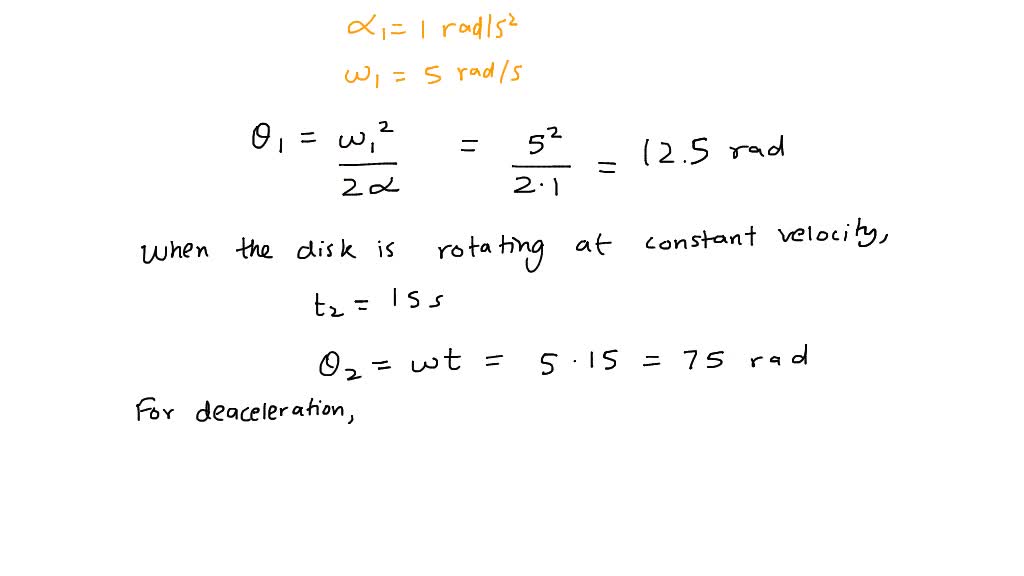 α₁ = 1 rad/s²
ω₁ = 5 rad/s
θ₁ = ω₁²/2α = 5²/2·1 = 12.5 rad
When the disk is rotating at constant velocity,
t₂ = 15 s
θ₂ = ωt = 5 · 15 = 75 rad
For deaceleration,